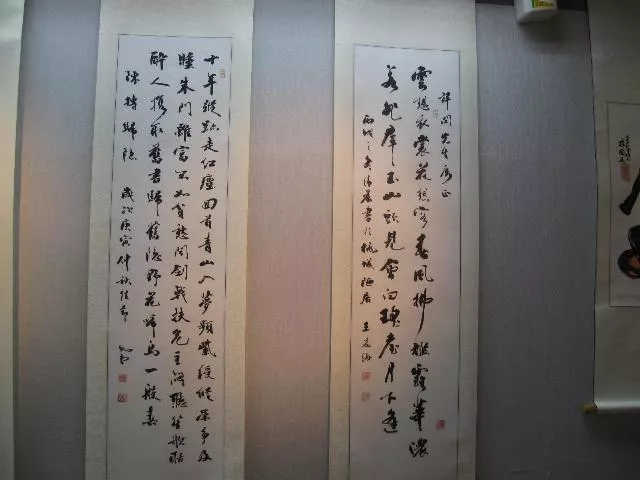 先生
雲想衣裳花想容春風拂檻露華濃
若非群玉山頭見會向瑤臺月下逢
丙戌之冬清晨書於桃城陋居 王
十年蹤跡走紅塵回首青山入夢頻紫綬縱榮爭及
睡朱門雖富不如貧愁聞劍戟扶危主悶聽笙歌聒
醉人攜取舊書歸舊隱野花啼鳥一般春
陳摶歸隱 歲次庚寅仲秋佳節